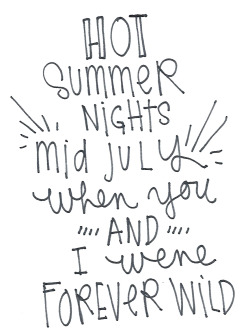 HOT
summer
NiGHTS
mid july
when you
AND
I were
FOREVER WiLD